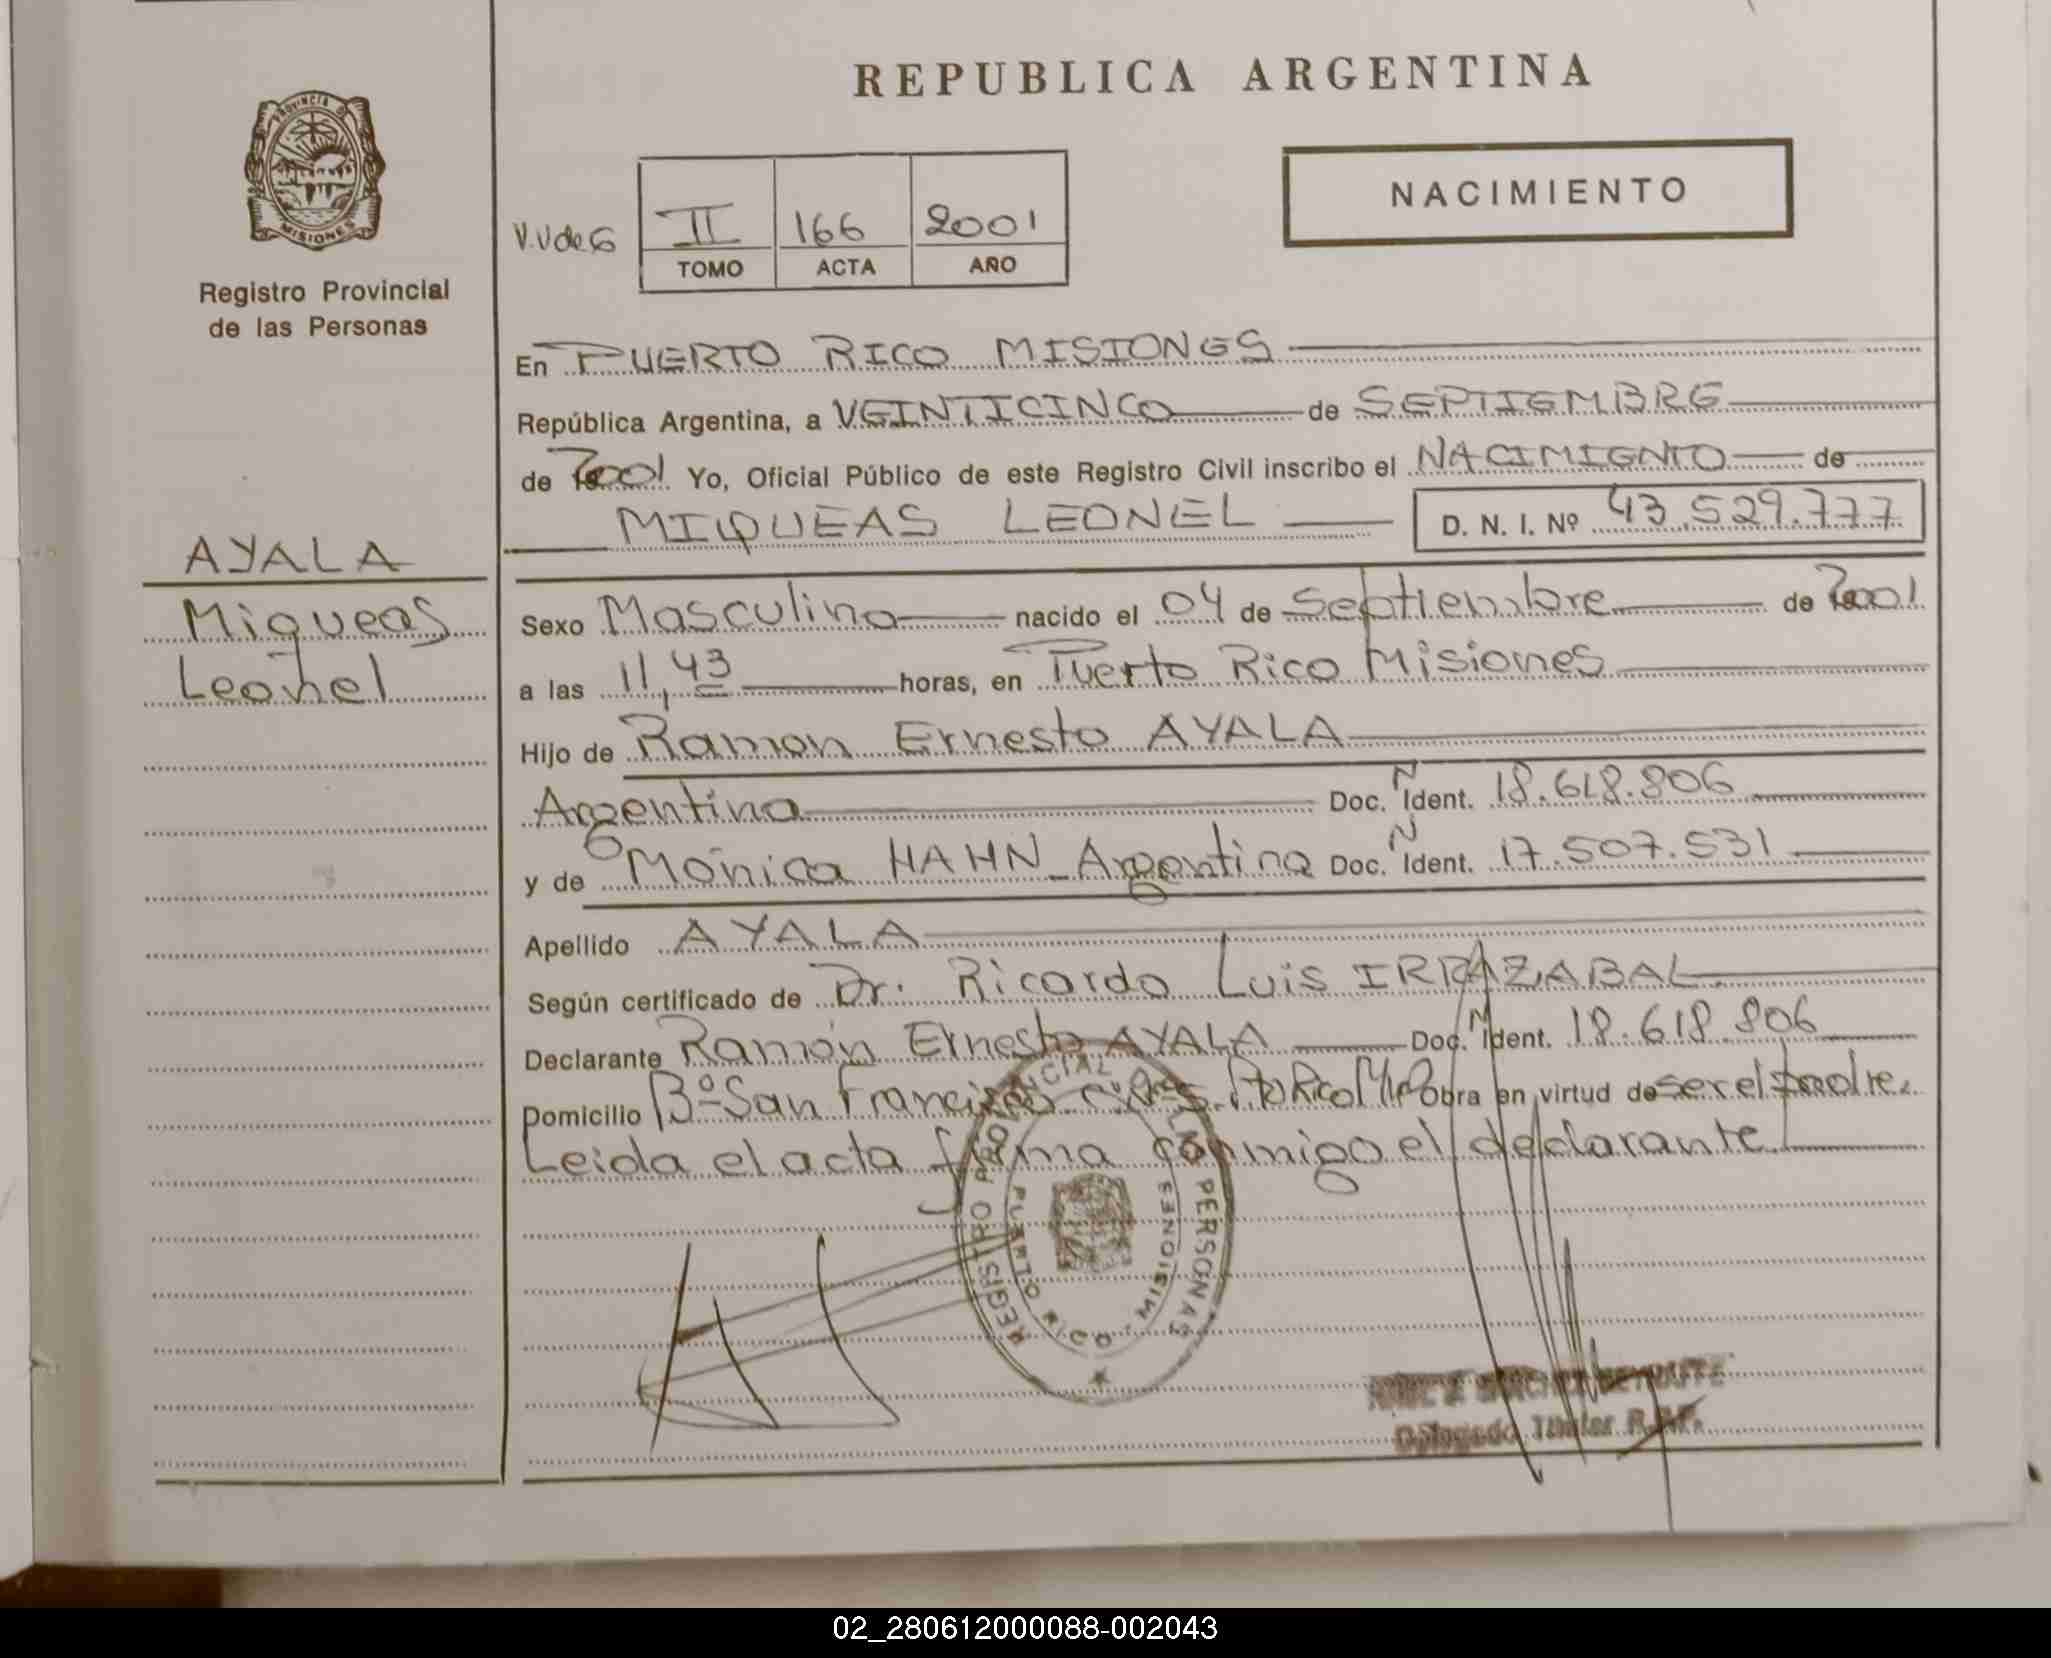 REPUBLICA ARGENTINA
PROVINCIA D
MISIONES
Registro Provincial
de las Personas
NACIMIENTO
V.V de G
II 166 2001
TOMO ACTA AÑO
En PUERTO RICO MISIONES
República Argentina, a VEINTICINCO de SEPTIEMBRE
de 2001 Yo, Oficial Público de este Registro Civil inscribo el NACIMIENTO de
MIQUEAS LEONEL D. N. I. Nº 43.529.777
AYALA
Miqueas
Leonel
Sexo Masculino nacido el 04 de Septiembre de 2001
a las 11,43 horas, en Puerto Rico Misiones
Hijo de Ramon Ernesto AYALA
Argentina Doc. N Ident. 18.618.806
y de Mónica HAHN Argentina Doc. N Ident. 17.507.531
Apellido AYALA
Según certificado de Dr. Ricardo Luis IRRAZABAL
Declarante Ramón Ernesto AYALA Doc. N Ident. 18.618.806
Domicilio Bº San Francisco Pto Rico Obra en virtud de ser el padre.
Leida el acta firma conmigo el declarante
REGISTRO PROVINCIAL PERSONAS
PUERTO RICO - MISIONES
Delegado Titular R.P.P.
02_280612000088-002043